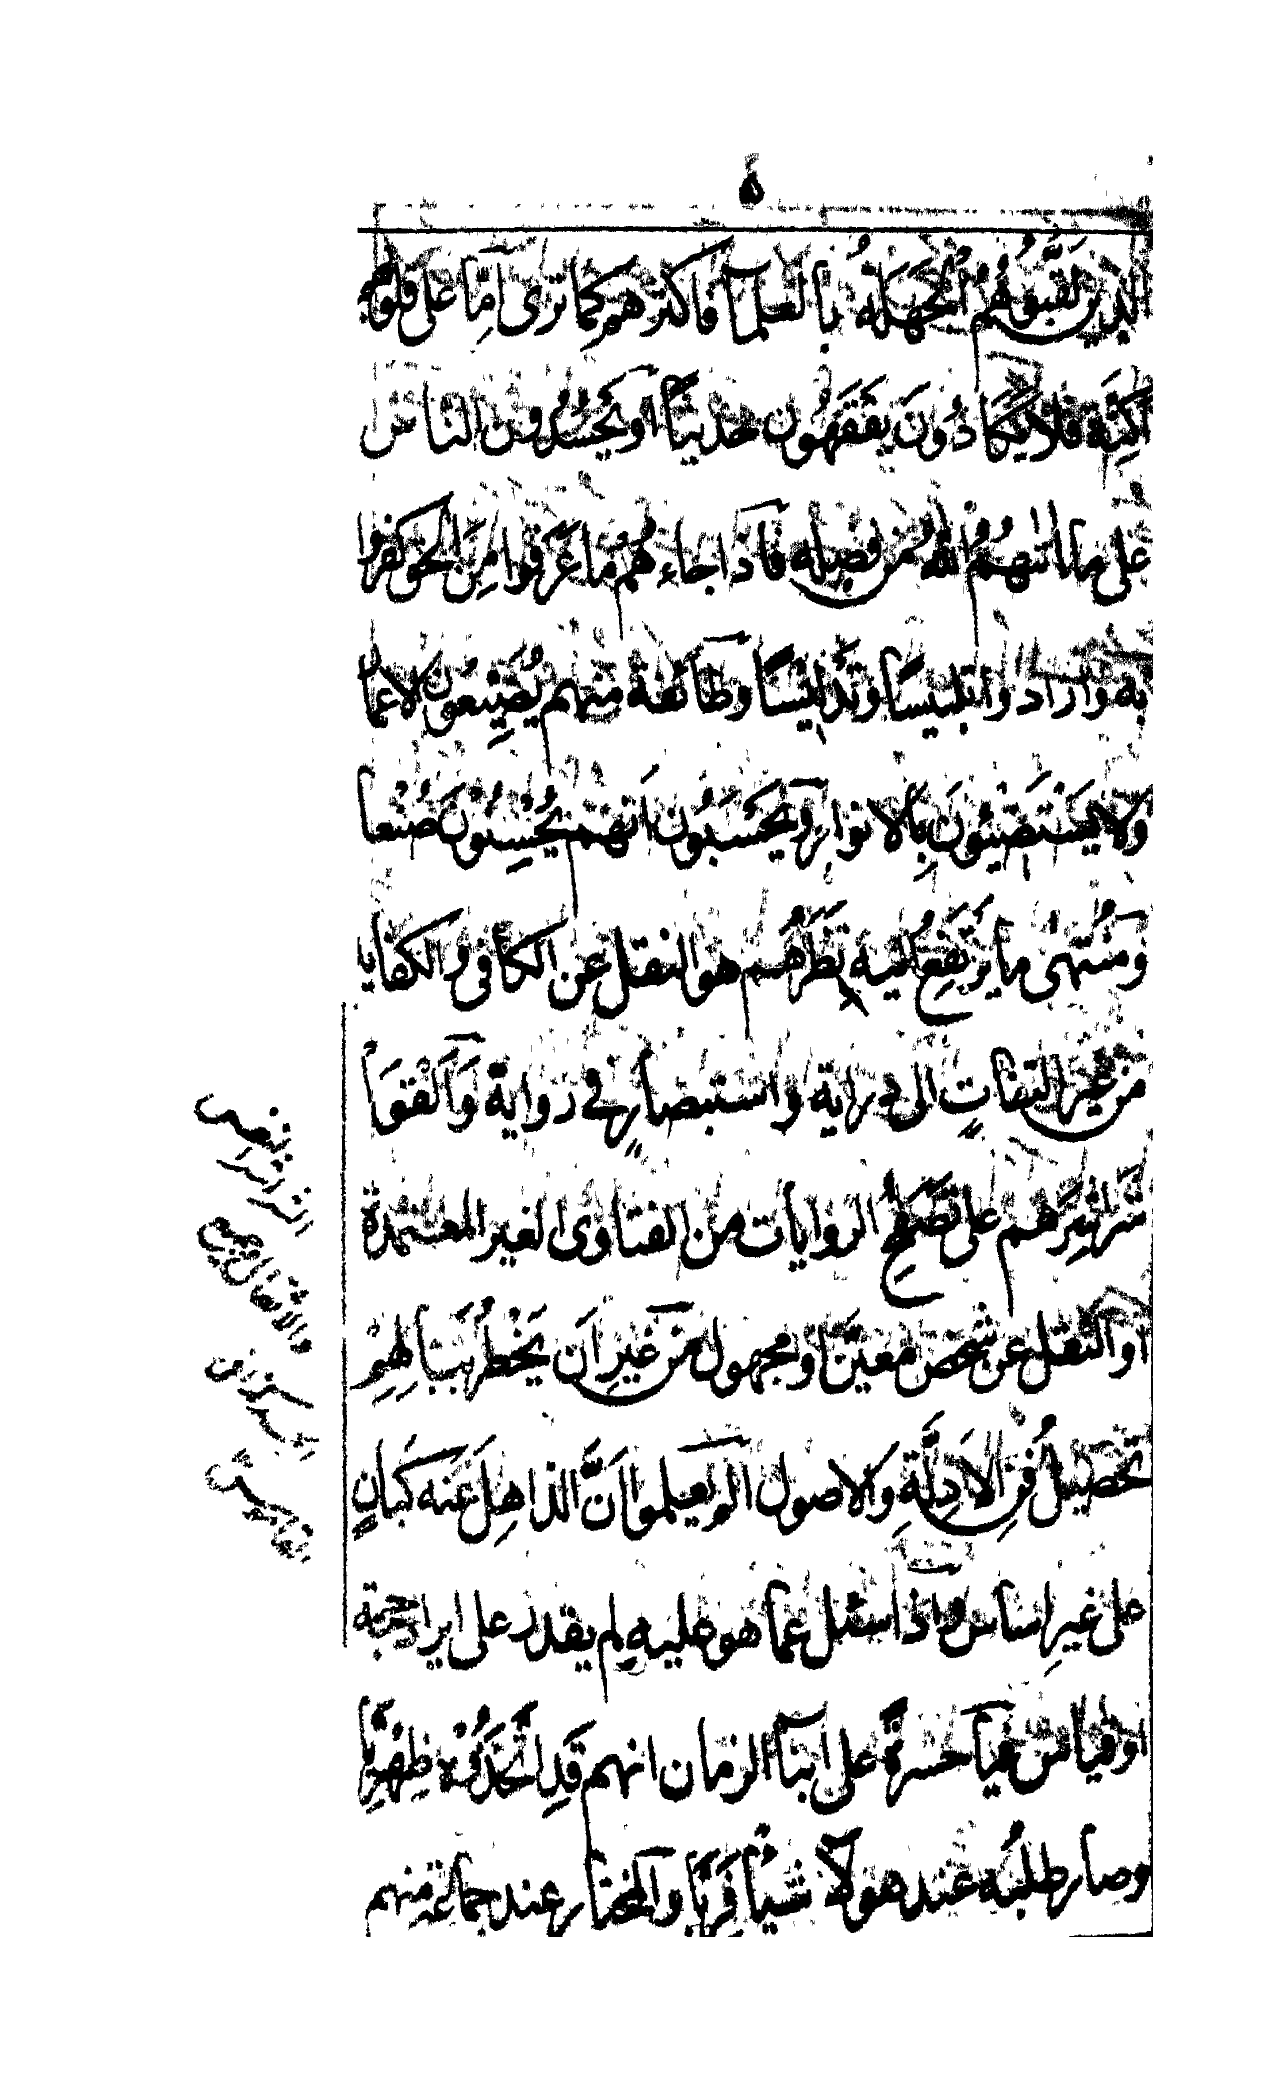 ٥
الذين لقبوهم الجهلة بالعلمآ فاكثرهم كما ترى امّا على قلوبهم
اكنّة فلا يكادون يفقهون حديثًا او يحسدون الناس
على ما اتٰهم الله من فضله فاذا جاءهم ما عرفوا من الحق كفروا
به وازدادوا تلبيسًا وتدليسًا وطآئفة منهم يضيعون الاعمار
ولا يستضيئون بالانوار ويحسبون انهم يحسنون صنعا
ومنتهى ما يرتفع اليه نظرهم هو النقل عن الكافى والكفايا
من غير التفاتٍ الى دراية واستبصارٍ فى رواية وآلقوا
شراشرهم على تصفح الروايات من الفتاوى الغير المعتمدة
او النقل عن شخص معين او مجهول من غير ان يخطر ببالهم
تحصيل فن الادلة والاصول الم يعلموا انّ الذاهل عنه كبانٍ
على غير اساس واذا سئل عما هو عليه لم يقدر على ايراد حجة
او قياس فيا حسرةً على ابنآ الزمان انهم قد اتخذوه ظهريًّا
وصار طلبه عند هولآء شيئًا فريًّا والمختار عند جماعة منهم
الشراشر
النفس
والاثقال